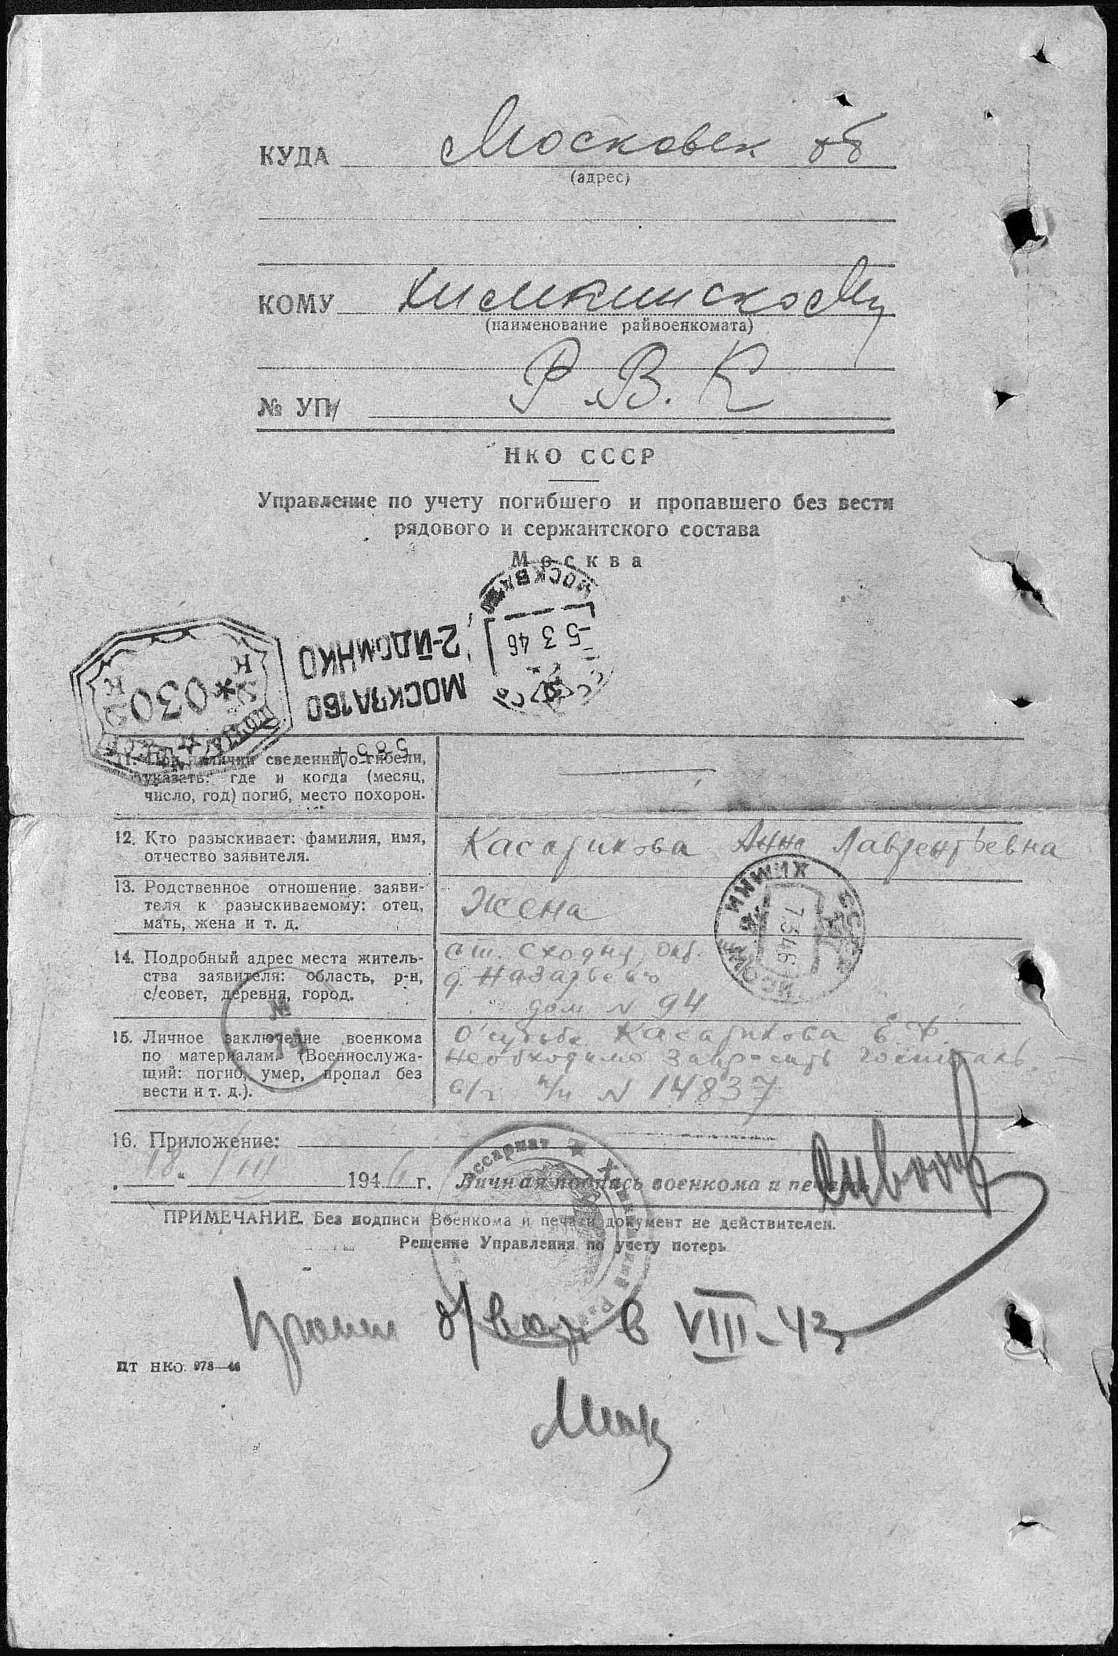 КУДА Московск об
(адрес)
КОМУ Химкинскому
(наименование райвоенкомата)
Р.В.К
№ УП/
НКО СССР
Управление по учету погибшего и пропавшего без вести
рядового и сержантского состава
Москва
МОСКВА
-5 3 46
СССР
2-Й ДОМ НКО
МОСКВА 160
*030
ПОЧТА
5854
11. При наличии сведений о гибели,
указать: где и когда (месяц,
число, год) погиб, место похорон.
12. Кто разыскивает: фамилия, имя,
отчество заявителя.
Касарикова Анна Лаврентьевна
13. Родственное отношение заяви-
теля к разыскиваемому: отец,
мать, жена и т. д.
Жена
ХИМКИ МОСК
7 3 46
СССР
14. Подробный адрес места житель-
ства заявителя: область, р-н,
с/совет, деревня, город.
ст. Сходня, Окт.
д. Назарьево
дом N 94
№
74
15. Личное заключение военкома
по материалам. (Военнослужа-
щий: погиб, умер, пропал без
вести и т. д.).
О судьбе Касарикова Е.Ф.
необходимо запросить госпиталь
п/п N 14837
16. Приложение:
18 " III 1946 г. Личная подпись военкома и печать
ПРИМЕЧАНИЕ. Без подписи Военкома и печати документ не действителен.
Решение Управления по учету потерь
Пропал б/вест в VIII-43
ЦТ НКО. 978—46